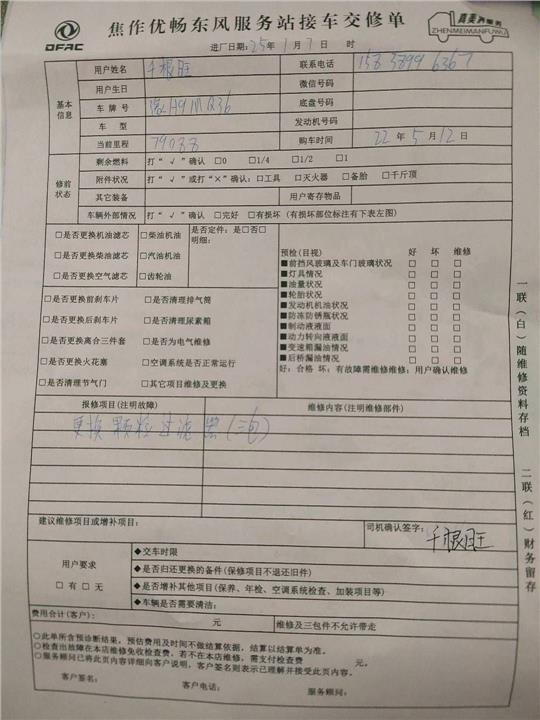 DFAC
焦作优畅东风服务站接车交修单
真美满服务
ZHENMEIMANFUWU
进厂日期:25年1月7日 时
基本信息
用户姓名 千根旺 联系电话 158 3899 6367
用户生日 微信号码
车牌号 豫A9MQ36 底盘号码
车型 发动机号码
当前里程 79088 购车时间 22年5月12日
修前状态
剩余燃料 打“√”确认 □0 □1/4 □1/2 □1
附件状况 打“√”或打“×”确认:□工具 □灭火器 □备胎 □千斤顶
其它装备 用户寄存物品
车辆外部情况 打“√”确认 □完好 □有损坏(有损坏部位标注有下表左图)
□是否更换机油滤芯 □柴油机油 是否定件:是□否□
明细:
□是否更换柴油滤芯 □汽油机油
□是否更换空气滤芯 □齿轮油
□是否更换前刹车片 □是否清理排气筒
□是否更换后刹车片 □是否清理尿素箱
□是否更换离合三件套 □是否为电气维修
□是否更换火花塞 □空调系统是否正常运行
□是否清理节气门 □其它项目维修及更换
预检(目视) 好 坏 维修
■前挡风玻璃及车门玻璃状况 □ □ □
■灯具情况 □ □ □
■油量状况 □ □ □
■轮胎状况 □ □ □
■发动机机油状况 □ □ □
■防冻防锈瓶状况 □ □ □
■制动液液面 □ □ □
■动力转向液液面 □ □ □
■变速箱漏油情况 □ □ □
■后桥漏油情况 □ □ □
好:合格 坏:有故障需维修维修:用户确认维修
报修项目(注明故障) 维修内容(注明维修部件)
更换颗粒过滤器(三包)
建议维修项目或增补项目: 司机确认签字:
千根旺
用户要求
□有 □无
◆交车时限
◆是否归还更换的备件(保修项目不退还旧件)
◆是否增补其他项目(保养、年检、空调系统检查、加装项目等)
◆车辆是否需要清洁:
费用合计(客户): 元 维修及三包件不允许带走
○此单所含预诊断结果,预估费用及时间不做结算依据,结算以结算单为准。
○检查出故障在本店维修免收检查费,若不在本店维修,需支付检查费 元。
○服务顾问已将此页内容详细向客户说明,客户签名则表示已理解并接受此页内容。
客户签名: 客户电话: 服务顾问:
一联(白)随维修资料存档
二联(红)财务留存